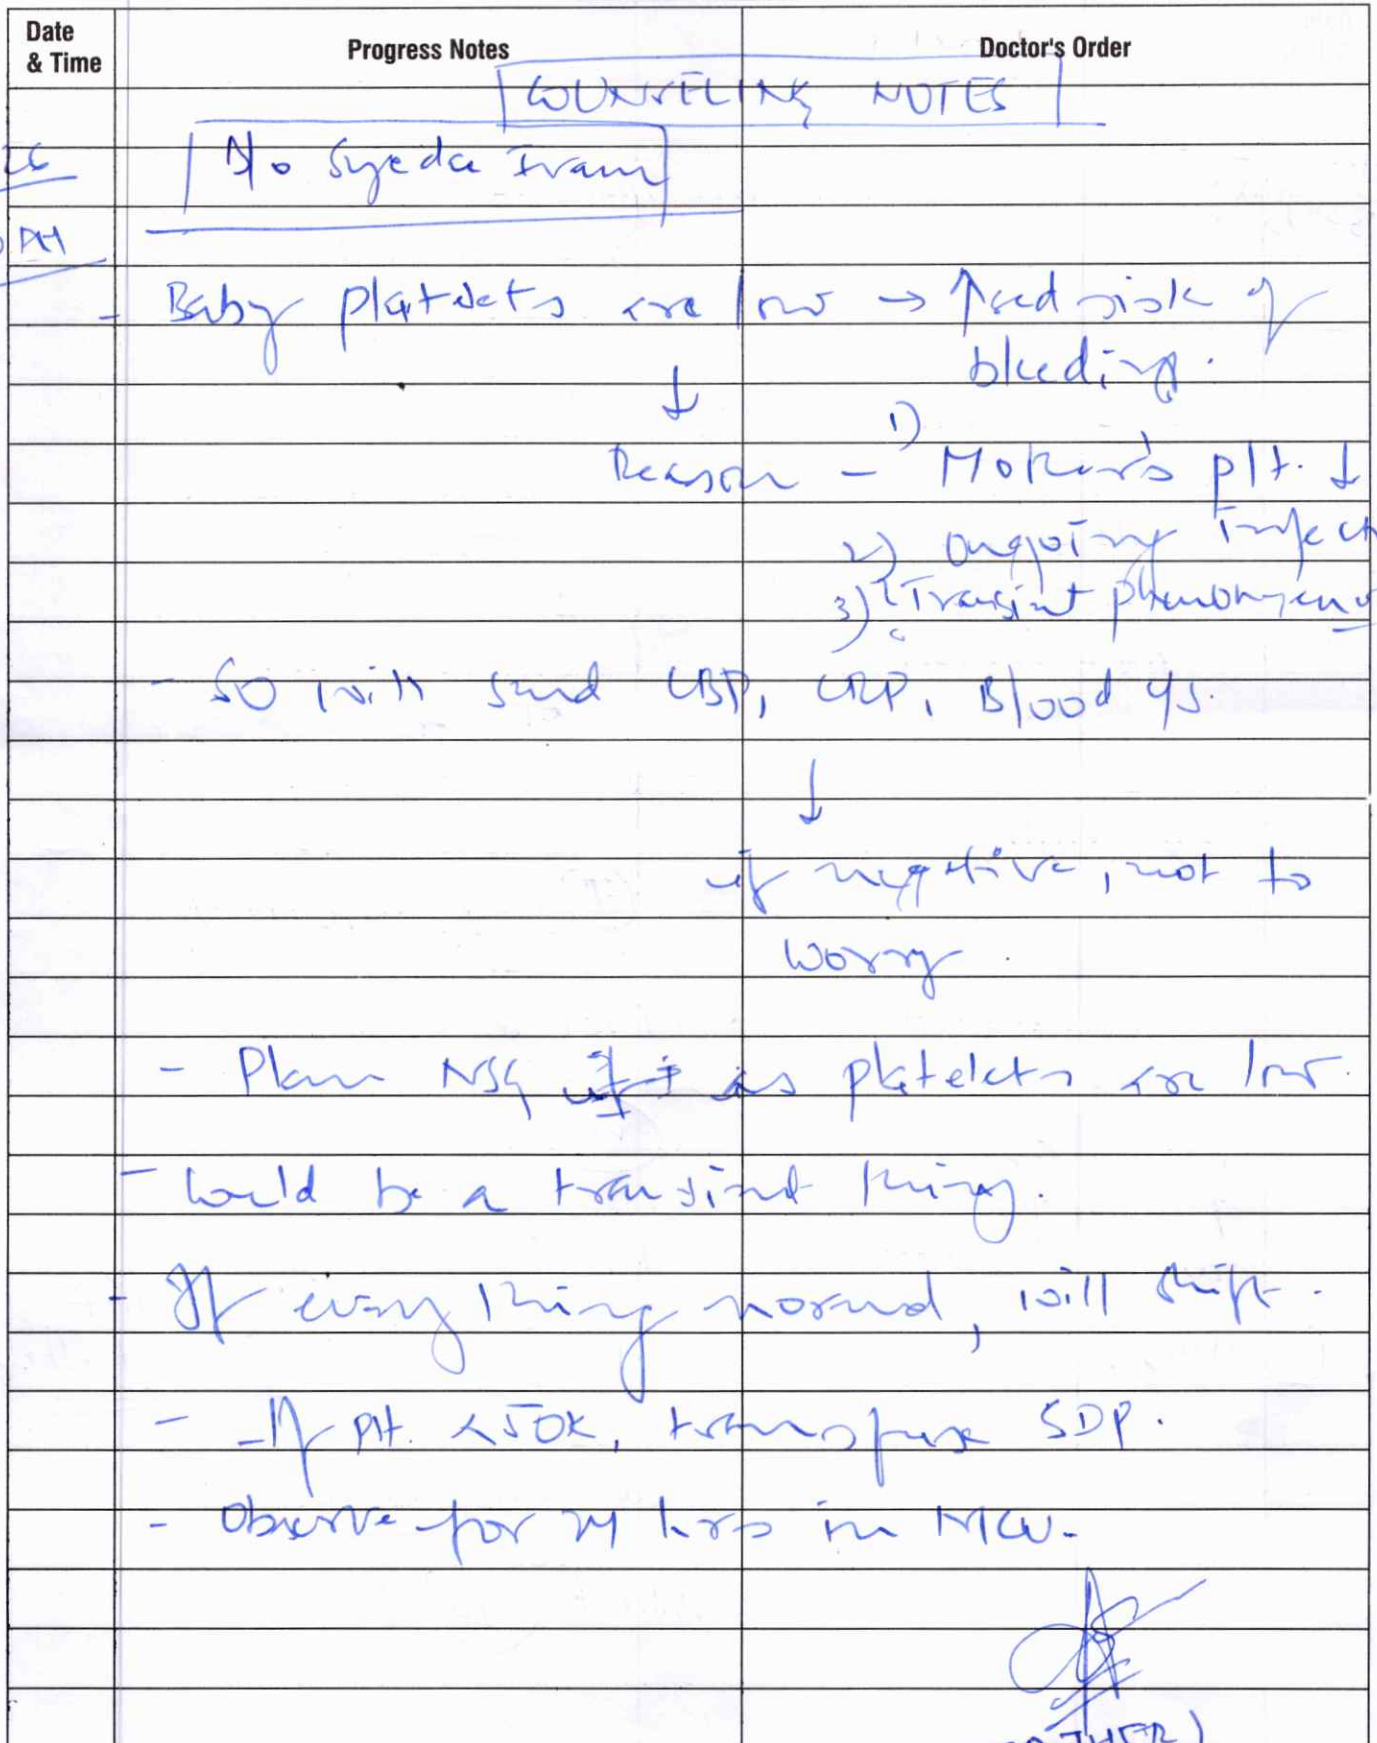 Date & Time
Progress Notes
Doctor's Order
COUNSELING NOTES
26
B/o Syeda Iram
PM
- Baby platelets are low → ↑sed risk of
bleeding.
↓
Reason - 1) Mother's plt. ↓
2) Ongoing Infect
3) ? Transint phenomyena
- SO will send CBP, CRP, Blood c/s.
↓
if negative, not to
worry.
- Plan NSG as platelets are low.
- Could be a transint thing.
- If everything normal, will shift.
- If plt. <50K, transfuse SDP.
- Observe for 24 hrs in NICU.